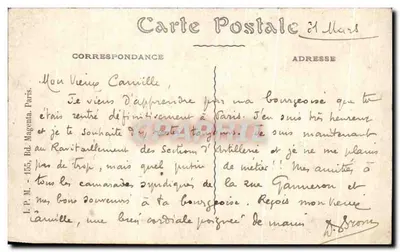 Carte Postale
31 Mars
CORRESPONDANCE
ADRESSE
I. P. M. - 155, Bd. Magenta, Paris.
Mon Vieux Camille,
Je viens D'apprendre par ma bourgeoise que tu
étais rentré définitivement à Paris. J'en suis très heureux
et je te souhaite d'y rester toujours. Je suis maintenant
au Ravitaillement des Sections d'Artillerie et je ne me plains
pas de trop, mais quel putin de métier !! Mes amitiés à
tous les camarades syndiqués de la rue Ganneron et
mes bons souvenirs à ta bourgeoise. Reçois mon vieux
Camille, une bien cordiale poignée de main